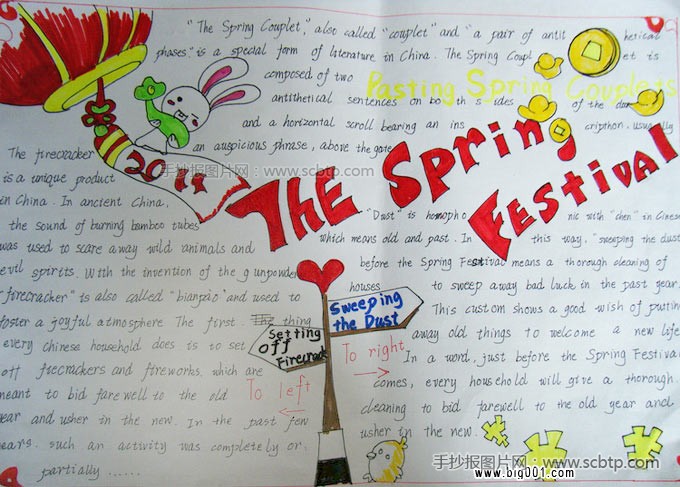 "The Spring Couplet", also called "couplet" and "a pair of antithetical
phases," is a special form of literature in China. The Spring Couplet is
composed of two
Pasting Spring Couplets
antithetical sentences on both sides of the door
and a horizontal scroll bearing an inscription, usually
an auspicious phrase, above the gate
2011
手抄报图片网:www.scbtp.com
The Spring
Festival
The firecracker
is a unique product
in China. In ancient China,
the sound of burning bamboo tubes
was used to scare away wild animals and
evil spirits. With the invention of the gunpowder
"firecracker" is also called "bianpao" and used to
foster a joyful atmosphere. The first thing
every chinese household does is to set
off firecrackers and fireworks, which are
meant to bid farewell to the old
year and usher in the new. In the past few
years, such an activity was completely or
partially ......
Setting
off
Firecrack
To left
Sweeping
the Dust
To right
"Dust" is homophonic with "chen" in Cinese
which means old and past. In this way, "sweeping the dust
before the Spring Festival means a thorough cleaning of
houses to sweep away bad luck in the past year.
This custom shows a good wish of putting
away old things to welcome a new life
In a word, just before the Spring Festival
comes, every household will give a thorough
cleaning to bid farewell to the old year and
usher in the new.
手抄报图片网:www.scbtp.com
www.big001.com